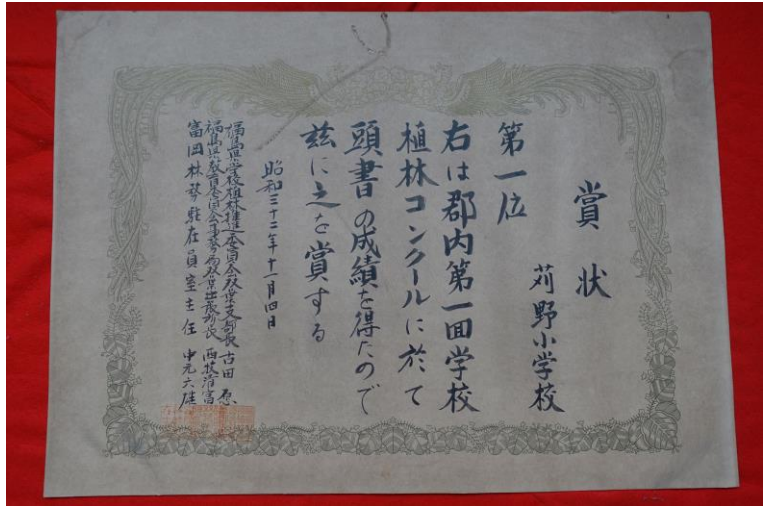 賞状
苅野小学校
第一位
右は郡内第一回学校
植林コンクールに於て
頭書の成績を得たので
玆に之を賞する
昭和三十二年十一月四日
福島県学校植林推進委員会双葉支部長 古田 原
福島県教育委員会事務局双葉出張所長 西牧清富
富岡林務駐在員室主任 中元六雄